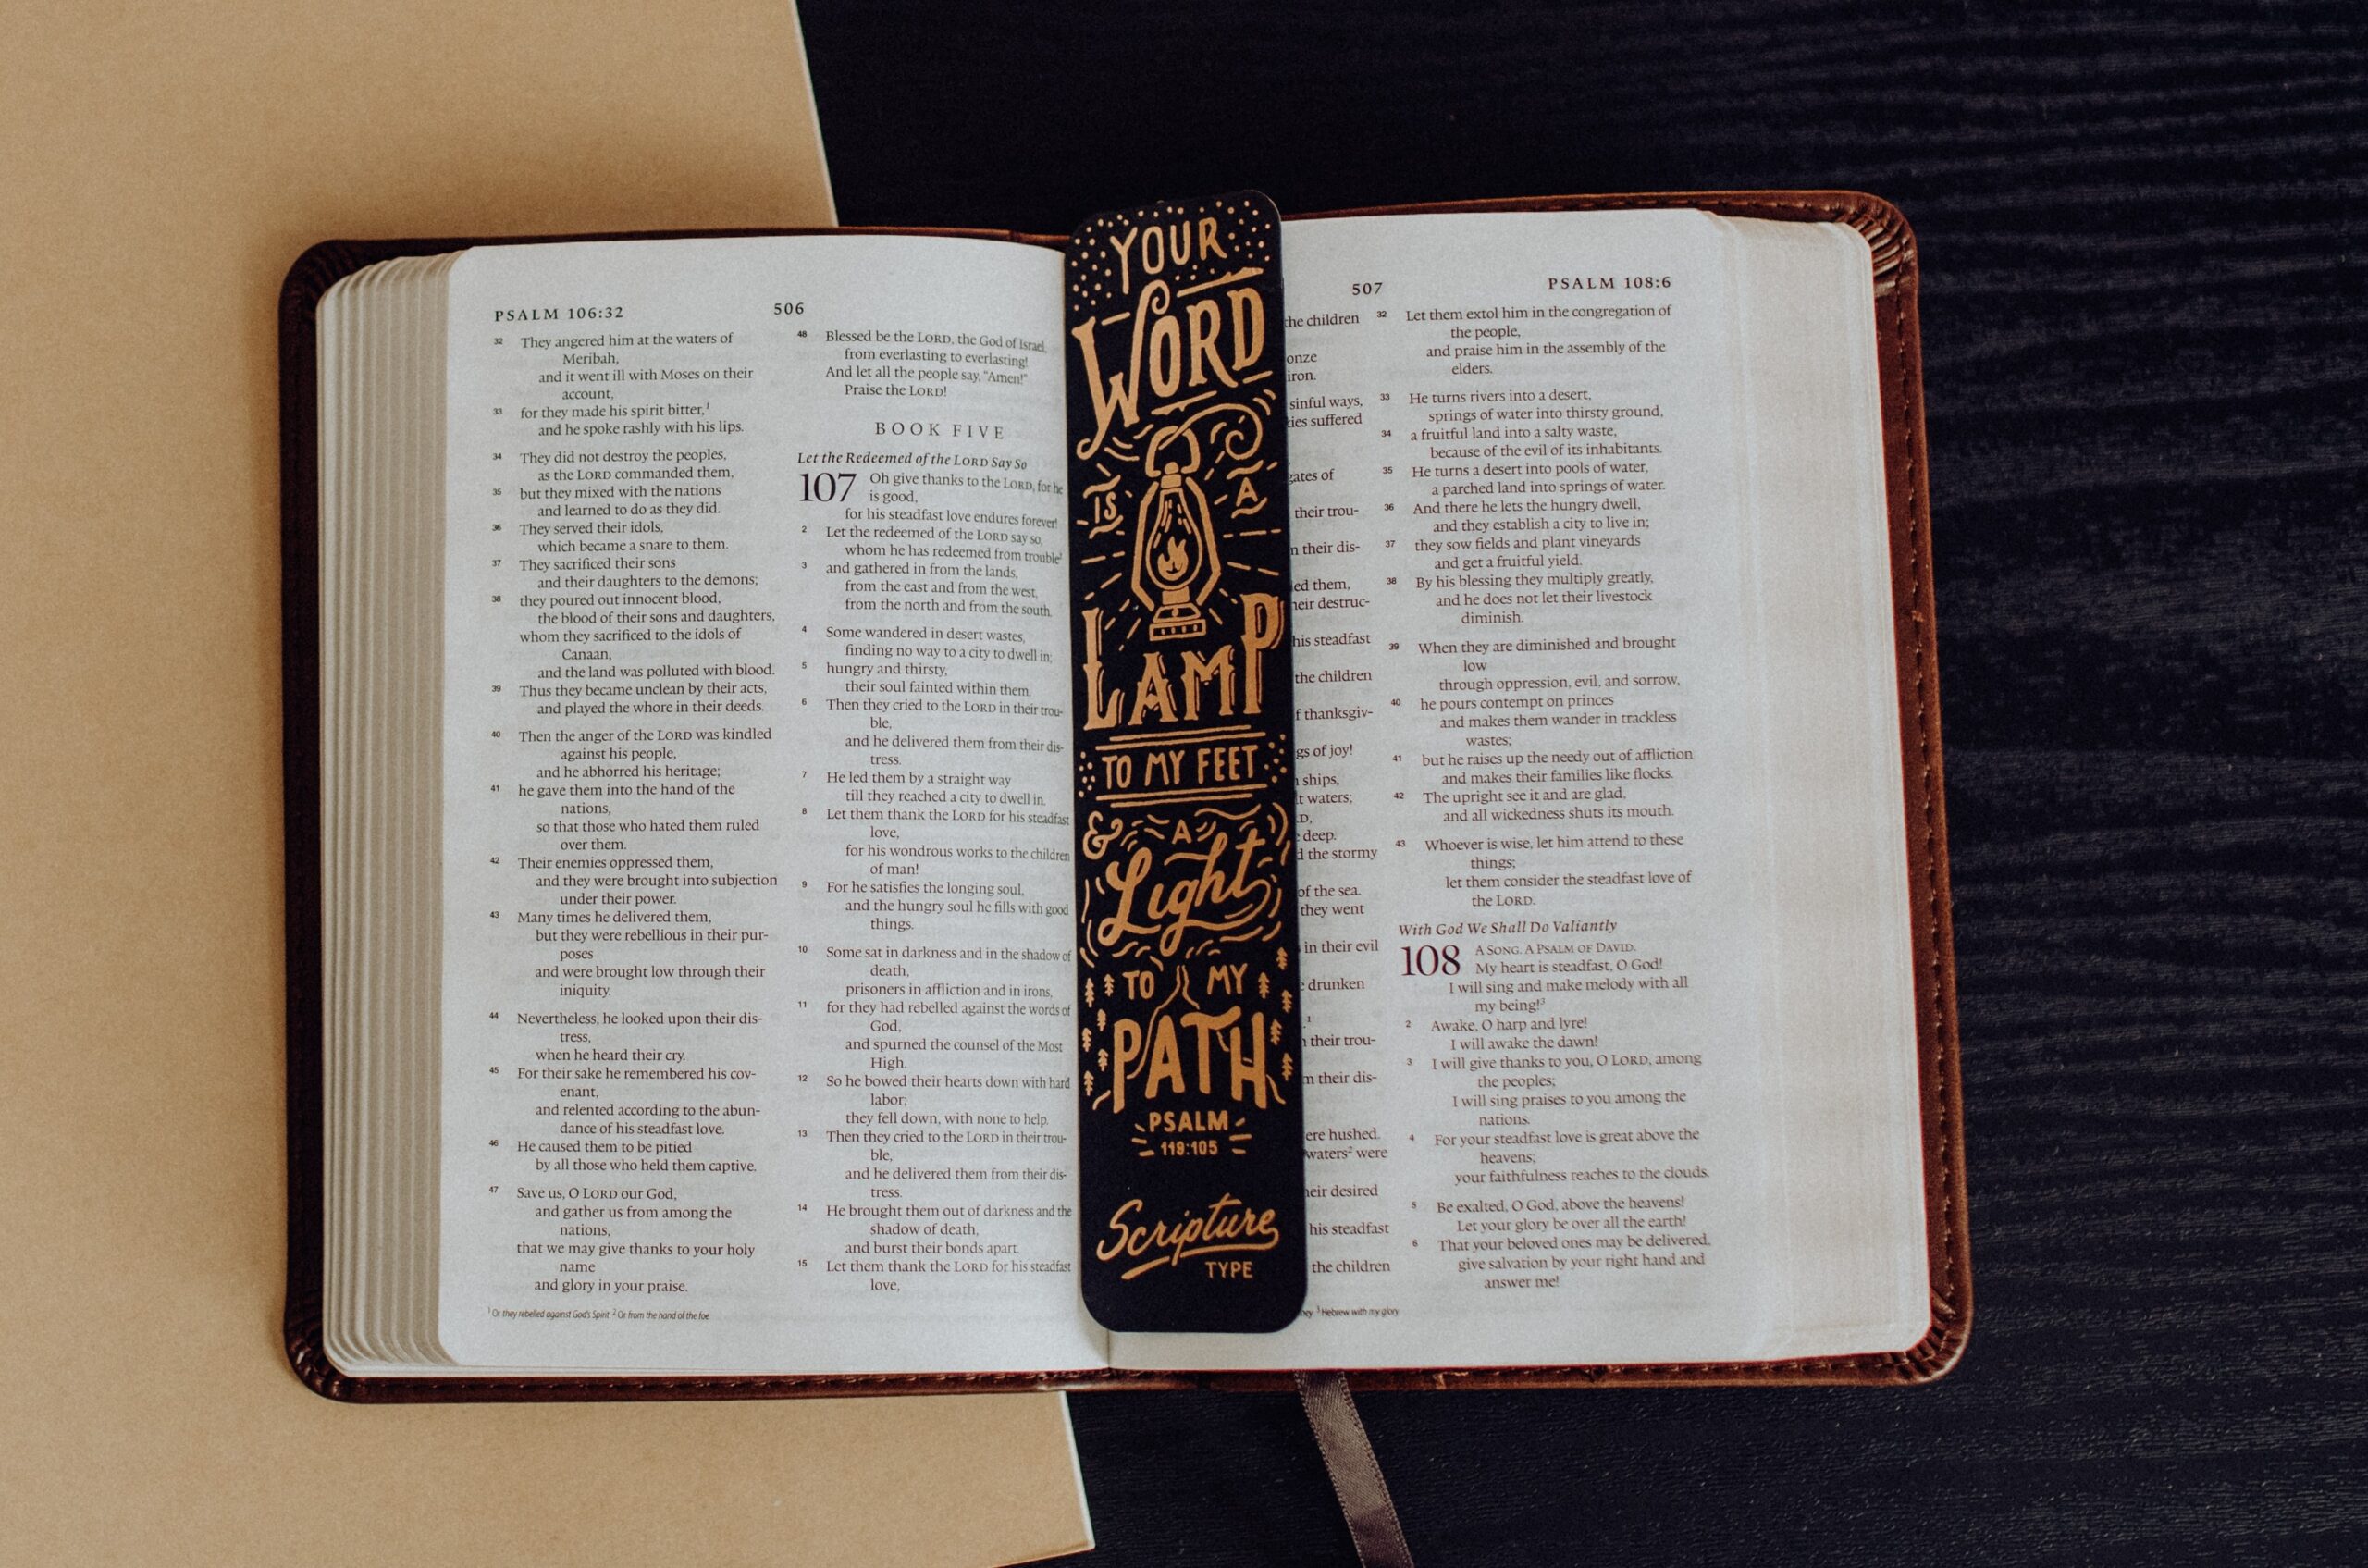 PSALM 106:32
506
32 They angered him at the waters of
Meribah,
and it went ill with Moses on their
account,
33 for they made his spirit bitter,1
and he spoke rashly with his lips.
34 They did not destroy the peoples,
as the LORD commanded them,
35 but they mixed with the nations
and learned to do as they did.
36 They served their idols,
which became a snare to them.
37 They sacrificed their sons
and their daughters to the demons;
38 they poured out innocent blood,
the blood of their sons and daughters,
whom they sacrificed to the idols of
Canaan,
and the land was polluted with blood.
39 Thus they became unclean by their acts,
and played the whore in their deeds.
40 Then the anger of the LORD was kindled
against his people,
and he abhorred his heritage;
41 he gave them into the hand of the
nations,
so that those who hated them ruled
over them.
42 Their enemies oppressed them,
and they were brought into subjection
under their power.
43 Many times he delivered them,
but they were rebellious in their pur-
poses
and were brought low through their
iniquity.
44 Nevertheless, he looked upon their dis-
tress,
when he heard their cry.
45 For their sake he remembered his cov-
enant,
and relented according to the abun-
dance of his steadfast love.
46 He caused them to be pitied
by all those who held them captive.
47 Save us, O LORD our God,
and gather us from among the
nations,
that we may give thanks to your holy
name
and glory in your praise.
48 Blessed be the LORD, the God of Israel,
from everlasting to everlasting!
And let all the people say, "Amen!"
Praise the LORD!
BOOK FIVE
Let the Redeemed of the LORD Say So
107 Oh give thanks to the LORD, for he
is good,
for his steadfast love endures forever!
2 Let the redeemed of the LORD say so,
whom he has redeemed from trouble2
3 and gathered in from the lands,
from the east and from the west,
from the north and from the south.
4 Some wandered in desert wastes,
finding no way to a city to dwell in;
5 hungry and thirsty,
their soul fainted within them.
6 Then they cried to the LORD in their trou-
ble,
and he delivered them from their dis-
tress.
7 He led them by a straight way
till they reached a city to dwell in.
8 Let them thank the LORD for his steadfast
love,
for his wondrous works to the children
of man!
9 For he satisfies the longing soul,
and the hungry soul he fills with good
things.
10 Some sat in darkness and in the shadow of
death,
prisoners in affliction and in irons,
11 for they had rebelled against the words of
God,
and spurned the counsel of the Most
High.
12 So he bowed their hearts down with hard
labor;
they fell down, with none to help.
13 Then they cried to the LORD in their trou-
ble,
and he delivered them from their dis-
tress.
14 He brought them out of darkness and the
shadow of death,
and burst their bonds apart.
15 Let them thank the LORD for his steadfast
love,
1 Or they rebelled against God's Spirit 2 Or from the hand of the foe
YOUR
WORD
IS A
LAMP
TO MY FEET
& A
Light
TO MY
PATH
PSALM
119:105
Scripture
TYPE
507
PSALM 108:6
the children
iron.
sinful ways,
suffered
gates of
their trou-
their dis-
them,
destruc-
his steadfast
the children
thanksgiv-
of joy!
ships,
waters;
deep.
the stormy
of the sea.
they went
in their evil
drunken
their trou-
their dis-
hushed.
waters2 were
desired
his steadfast
the children
32 Let them extol him in the congregation of
the people,
and praise him in the assembly of the
elders.
33 He turns rivers into a desert,
springs of water into thirsty ground,
34 a fruitful land into a salty waste,
because of the evil of its inhabitants.
35 He turns a desert into pools of water,
a parched land into springs of water.
36 And there he lets the hungry dwell,
and they establish a city to live in;
37 they sow fields and plant vineyards
and get a fruitful yield.
38 By his blessing they multiply greatly,
and he does not let their livestock
diminish.
39 When they are diminished and brought
low
through oppression, evil, and sorrow,
40 he pours contempt on princes
and makes them wander in trackless
wastes;
41 but he raises up the needy out of affliction
and makes their families like flocks.
42 The upright see it and are glad,
and all wickedness shuts its mouth.
43 Whoever is wise, let him attend to these
things;
let them consider the steadfast love of
the LORD.
With God We Shall Do Valiantly
108 A SONG. A PSALM OF DAVID.
My heart is steadfast, O God!
I will sing and make melody with all
my being!3
2 Awake, O harp and lyre!
I will awake the dawn!
3 I will give thanks to you, O LORD, among
the peoples;
I will sing praises to you among the
nations.
4 For your steadfast love is great above the
heavens;
your faithfulness reaches to the clouds.
5 Be exalted, O God, above the heavens!
Let your glory be over all the earth!
6 That your beloved ones may be delivered,
give salvation by your right hand and
answer me!
3 Hebrew with my glory